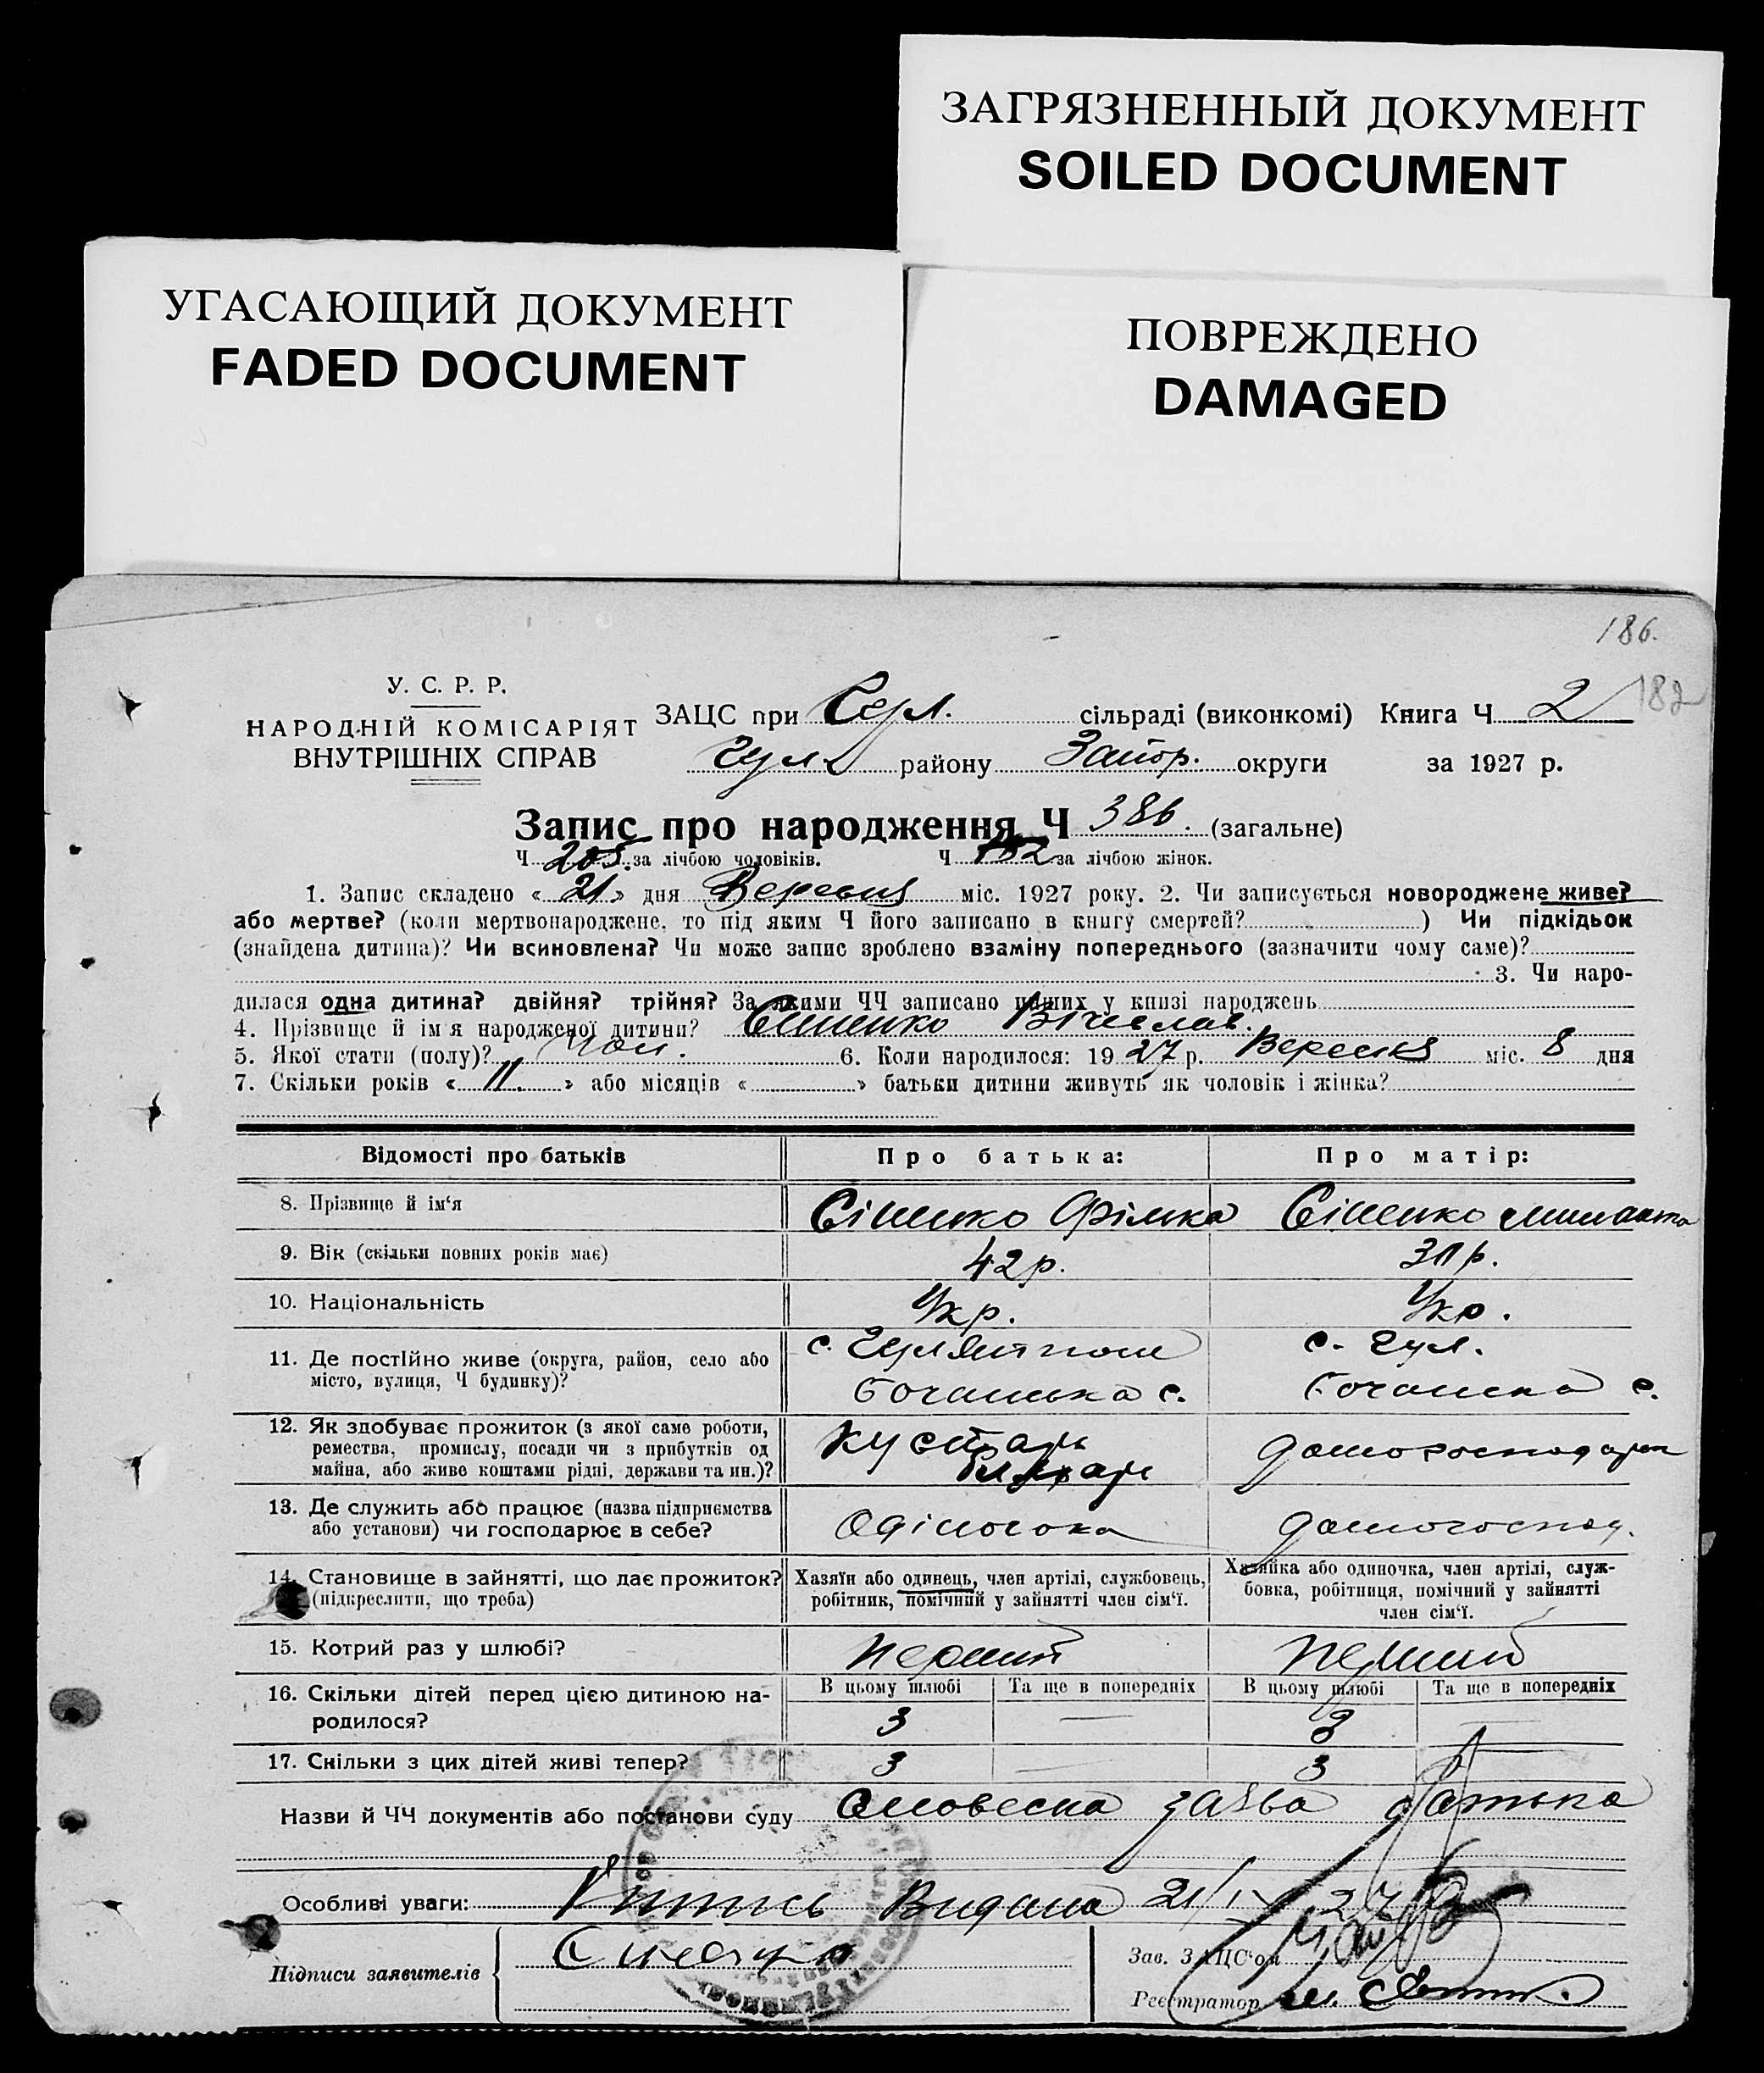 ЗАГРЯЗНЕННЫЙ ДОКУМЕНТ
SOILED DOCUMENT
УГАСАЮЩИЙ ДОКУМЕНТ
FADED DOCUMENT
ПОВРЕЖДЕНО
DAMAGED
186.
182
У. С. Р. Р.
НАРОДНІЙ КОМІСАРІЯТ
ВНУТРІШНІХ СПРАВ
ЗАЦС при Гул. сільраді (виконкомі) Книга Ч 2
Гул. району Запор. округи за 1927 р.
Запис про народження Ч 386. (загальне)
Ч 205 за лічбою чоловіків. Ч за лічбою жінок.
1. Запис складено « 21 » дня Вересня міс. 1927 року. 2. Чи записується новороджене живе?
або мертве? (коли мертвонароджене, то під яким Ч його записано в книгу смертей? ) Чи підкідьок
(знайдена дитина)? Чи всиновлена? Чи може запис зроблено взаміну попереднього (зазначити чому саме)?
3. Чи наро-
дилася одна дитина? двійня? трійня? За якими ЧЧ записано инших у книзі народжень
4. Прізвище й імʼя народженої дитини? Сіненко Вічеслав.
5. Якої стати (полу)? Чол. 6. Коли народилося: 1927 р. Вересня міс. 8 дня
7. Скільки років « 11. » або місяців « » батьки дитини живуть як чоловік і жінка?
Відомості про батьків Про батька: Про матір:
8. Прізвище й ім‘я Сіненко Сіненко
9. Вік (скільки повних років має) 42 р. 31 р.
10. Національність Укр. Укр.
11. Де постійно живе (округа, район, село або
місто, вулиця, Ч будинку)?
с. Гуляйполе с. Гул.
Бочанська с. Бочанська с.
12. Як здобуває прожиток (з якої саме роботи,
ремества, промислу, посади чи з прибутків од
майна, або живе коштами рідні, держави та ин.)?
кустарь домогосподарка
13. Де служить або працює (назва підприємства
або установи) чи господарює в себе?
домогоспод.
14. Становище в зайнятті, що дає прожиток?
(підкреслити, що треба)
Хазяїн або одинець, член артілі, службовець,
робітник, помічний у зайнятті член сім‘ї.
Хазяйка або одиночка, член артілі, служ-
бовка, робітниця, помічний у зайнятті
член сім‘ї.
15. Котрий раз у шлюбі? Перший Перший
16. Скільки дітей перед цією дитиною на-
родилося?
В цьому шлюбі Та ще в попередніх В цьому шлюбі Та ще в попередніх
3 — 3 —
17. Скільки з цих дітей живі тепер? 3 — 3 —
Назви й ЧЧ документів або постанови суду Словесна заява батька
Особливі уваги: Витись Видана 21/IX 27
Підписи заявителів
Зав. ЗАЦС‘ом
Реєстратор